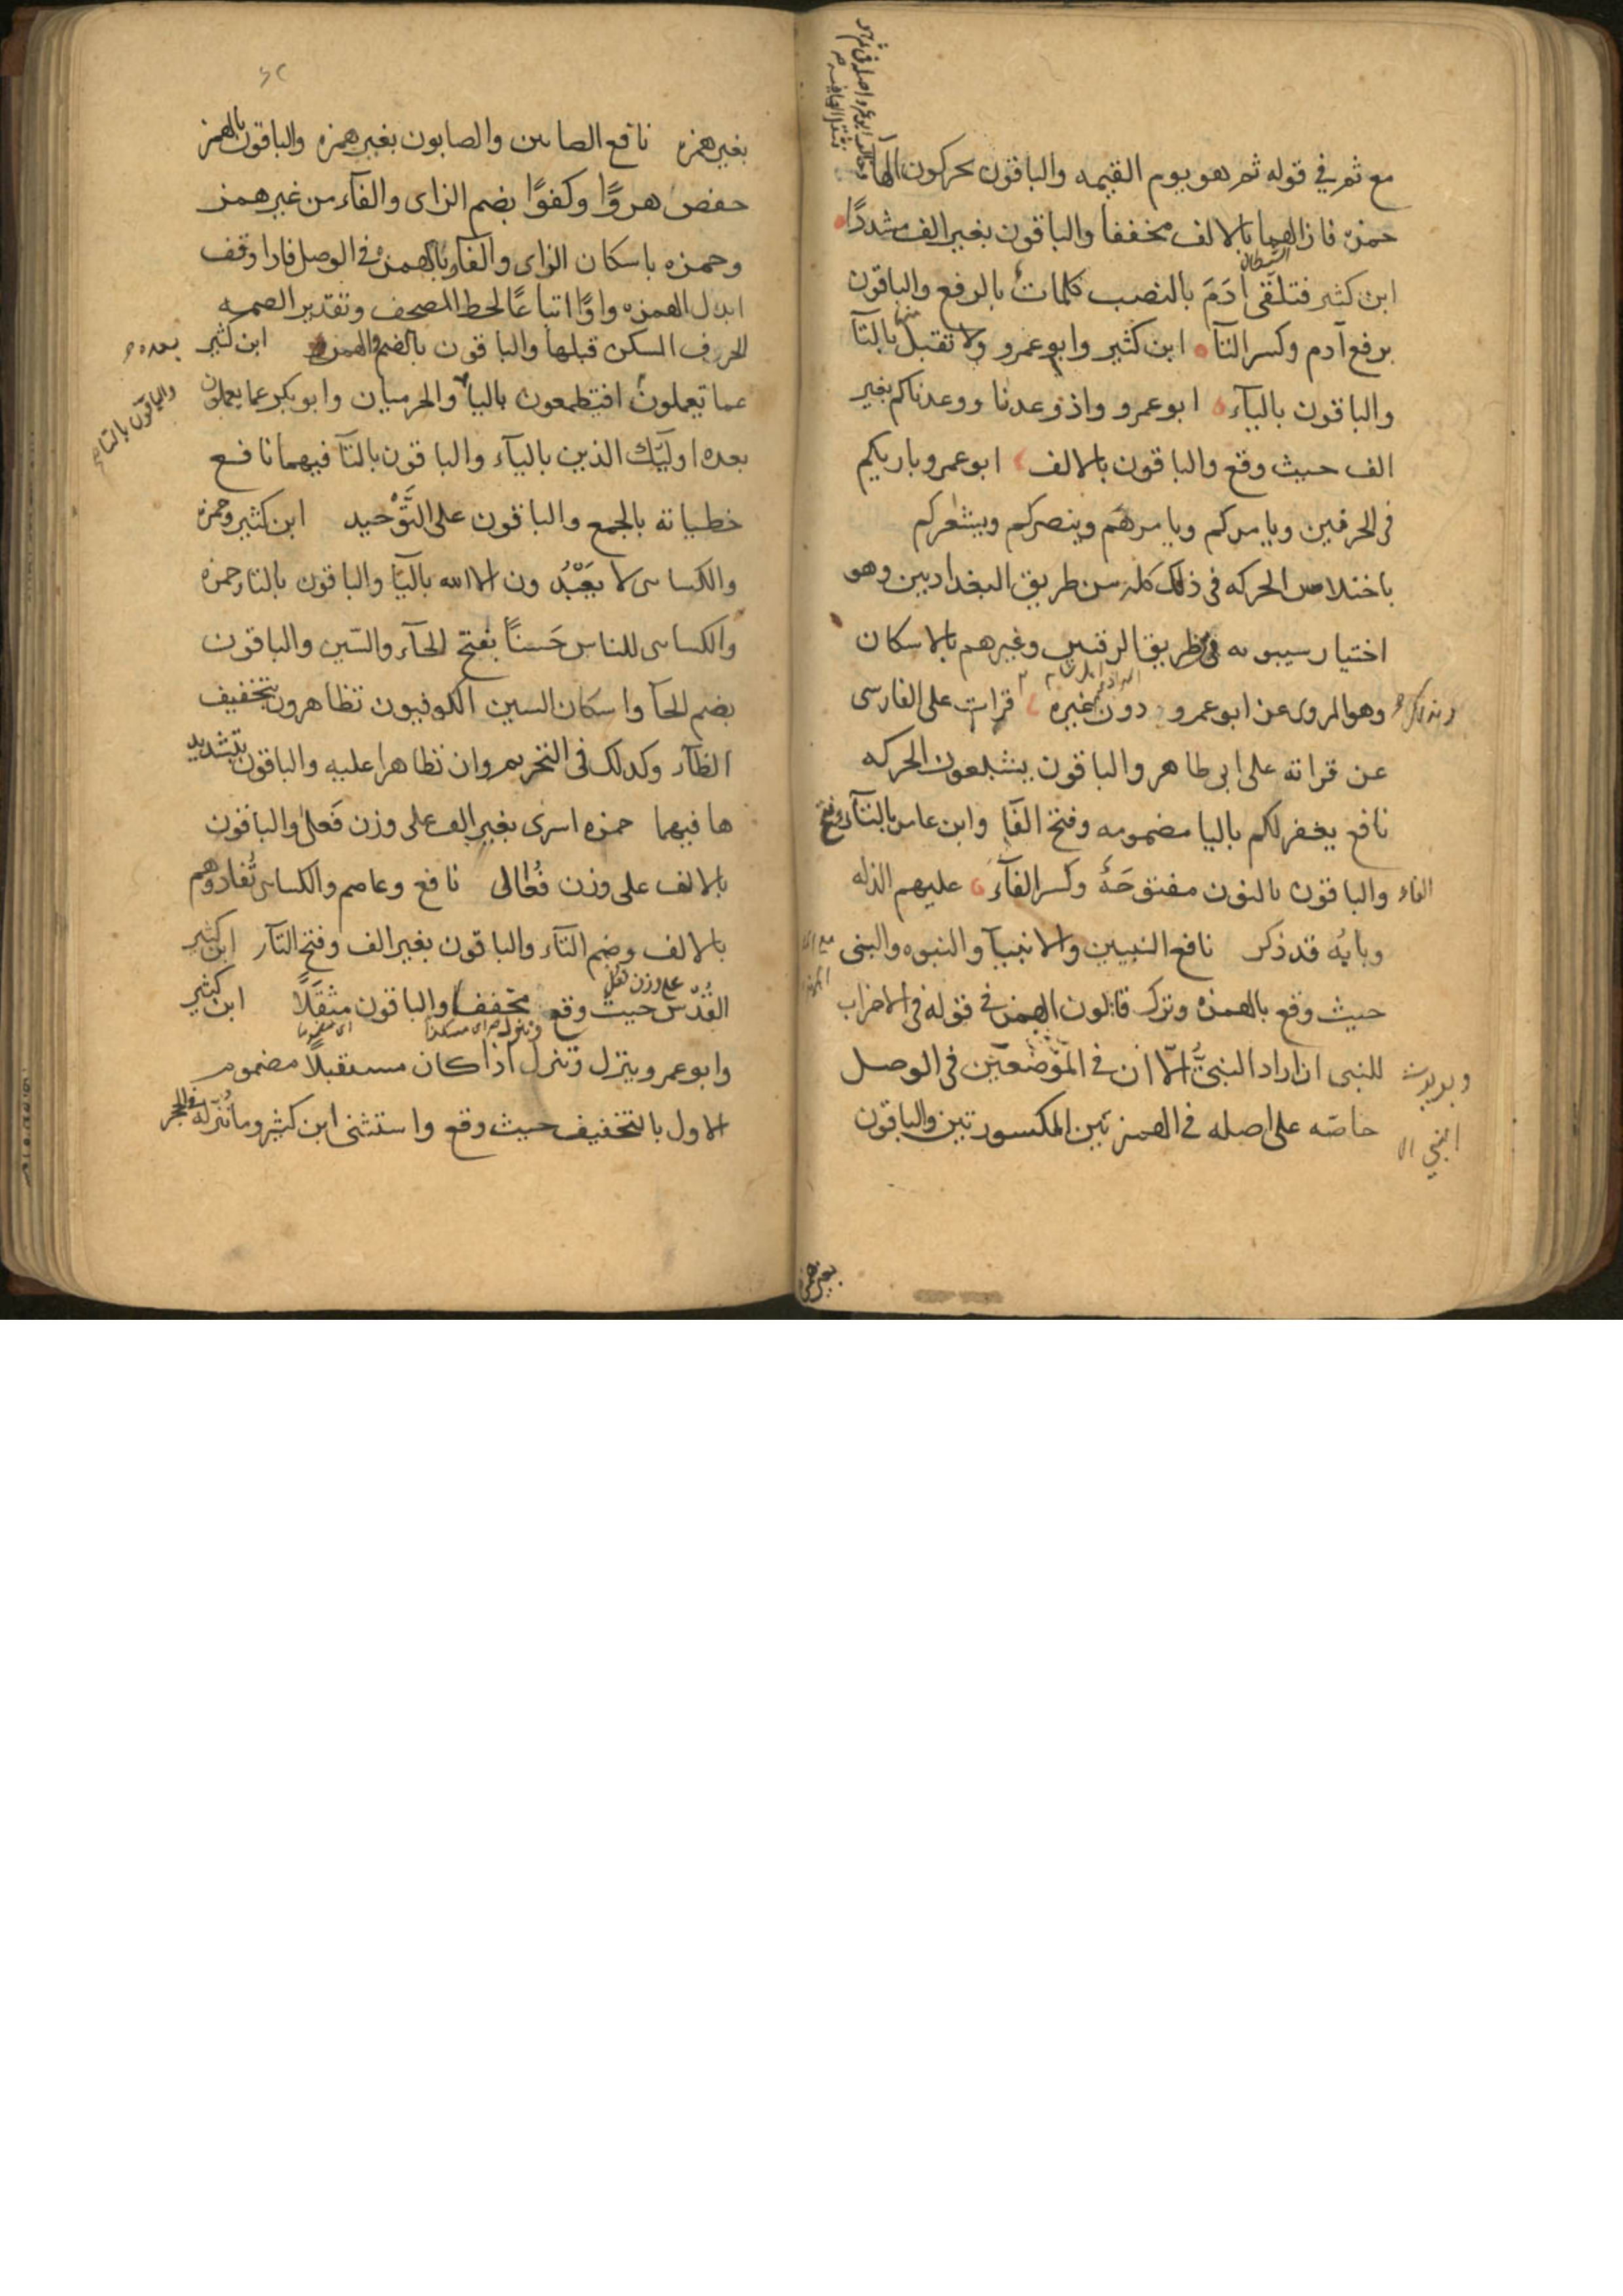 مع ثم في قوله ثم هو يوم القيمه والباقون يحركون الها
حمزه فازالهما بالالف مخففا والباقون بغير الف مشددًا
الشيطان
ابن كثير فتلقى ادَمَ بالنصب كلماتٌ بالرفع والباقون
برفع آدم وكسر التآء ابن كثير وابو عمرو ولا تقبل منها بالتآ
والباقون باليآء ابو عمرو واذ وعدنا ووعدناكم بغير
الف حيث وقع والباقون بالالف ابو عمرو باريكم
في الحرفين ويامركم ويامرهم وينصركم ويشعركم
باختلاس الحركه في ذلك كله من طريق البغداديين وهو
اختيار سيبويه ومن طريق الرقيين وغيرهم بالاسكان
وهو المروى عن ابو عمرو دون غيره وبذلك قرات على الفارسى
عن قراته على ابى طاهر والباقون يشبعون الحركه
نافع يغفر لكم باليا مضمومه وفتح الفآ وابن عامر بالتآء وفتح
الفاء والباقون بالنون مفتوحَةً وكسر الفآء عليهم الذله
وبابُه قد ذكر نافع النبيين والانبيآ والنبوه والنبى
حيث وقع بالهمزه وترك قالون الهمز في قوله في الاحزاب
للنبى ان اراد النبىُّ الّا ان في الموضعين في الوصل
وبيوت
النبي الا
خاصّه على اصله في الهمزتين المكسورتين والباقون
بغير همز
بغير همزه نافع الصابين والصابون بغير همزه والباقون بالهمز
حفص هزوًا وكفوًا بضم الزاى والفآء من غير همز
وحمزه باسكان الزاى والفآء وبالهمزه في الوصل فاذا وقف
ابدل الهمزه واوًا اتباعًا لخط المصحف وتقدير الضمه
الحرف المسكن قبلها والباقون بالضم والهمز ابن كثير
عما تعملون افتطمعون باليآ والحرميان وابو بكر عما يعملون
بعده
والباقون بالتا
بعده اوليٓك الذين باليآء والباقون بالتآ فيهما نافع
خطياته بالجمع والباقون على التَّوْحيد ابن كثير وحمزه
والكساى لا يعبُدُون الا الله باليَا والباقون بالتاء حمزه
والكساى للناس حَسَنًا بفتح الحآء والسّين والباقون
بضم الحآ واسكان السين الكوفيون تظاهرون بتخفيف
الظآء وكذلك في التحريم وان تظاهرا عليه والباقون بتشديد
ها فيهما حمزه اسرى بغير الف على وزن فَعلى والباقون
بالالف على وزن فُعَالى نافع وعاصم والكساى تُفادوهم
بالالف وضم التآء والباقون بغير الف وفتح التآء ابن كثير
القُدْس حيث وقع مخففا والباقون مثقلًا ابن كثير
على وزن فعل
وابو عمرو ينزل وتنزل وننزل اذا كان مستقبلًا مضموم
الاول بالتخفيف حيث وقع واستثنى ابن كثير وما نُنَزّله في الحجر